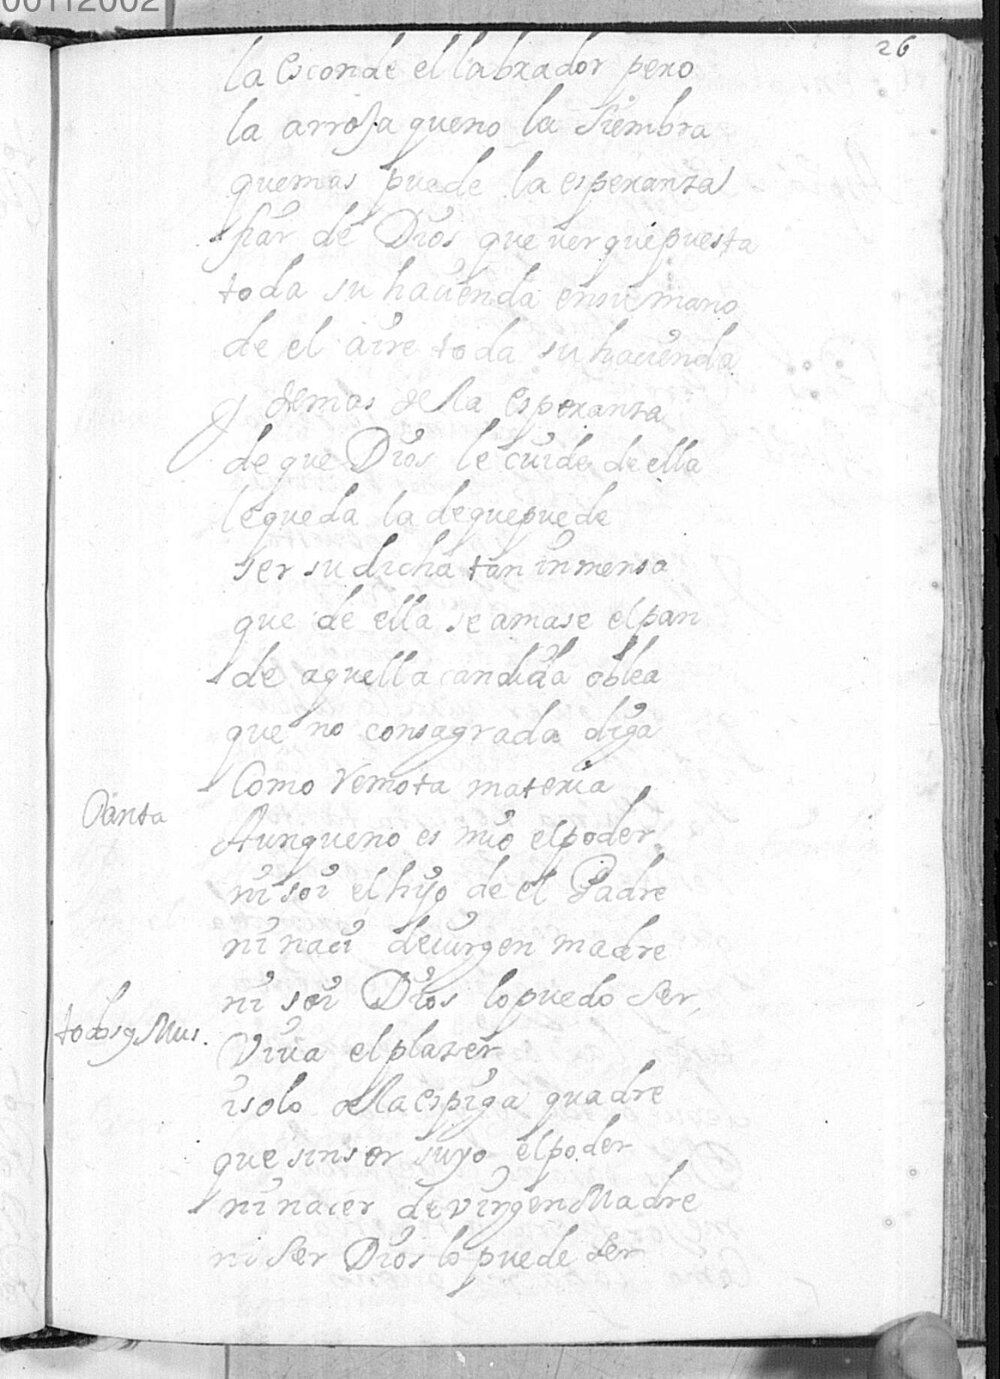 00112002
26
la esconde el labrador pero
la arroja queno la siembra
quemas puede la esperanza
fiar de Dios que ver que puesta
toda su hacienda ensu mano
de el aire toda su hacienda
y demas de la esperanza
de que Dios le cuide de ella
lequeda la dequepuede
ser su dicha tan inmensa
que de ella se amase elpan
de aquella candida oblea
que no consagrada diga
Como remota materia
Canta Aunqueno es mio elpoder
ni soi el hijo de el Padre
ni naci devirgen madre
ni soi Dios lopuedo ser,
todos y Mus. Viva elplazer
isolo de la espiga quadre
que sinser suyo elpoder
ni nacer de virgen Madre
ni ser Dios lo puede ser